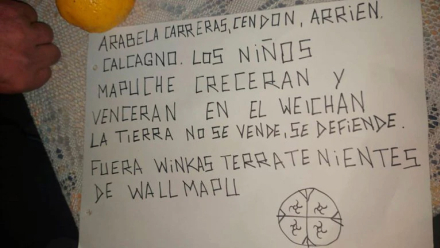 ARABELA CARRERAS, CENDON, ARRIEN.
CALCAGNO. LOS NIÑOS
MAPUCHE CRECERAN Y
VENCERAN EN EL WEICHAN
LA TIERRA NO SE VENDE, SE DEFIENDE.
FUERA WINKAS TERRATENIENTES
DE WALLMAPU